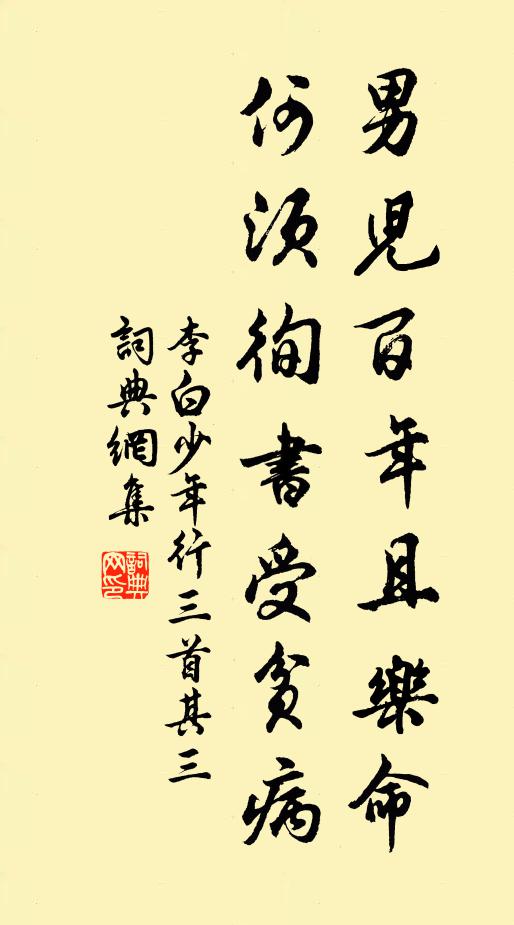 男兒百年且樂命
何須徇書受貧病
李白少年行三首其三
詞典網集
詞典網印